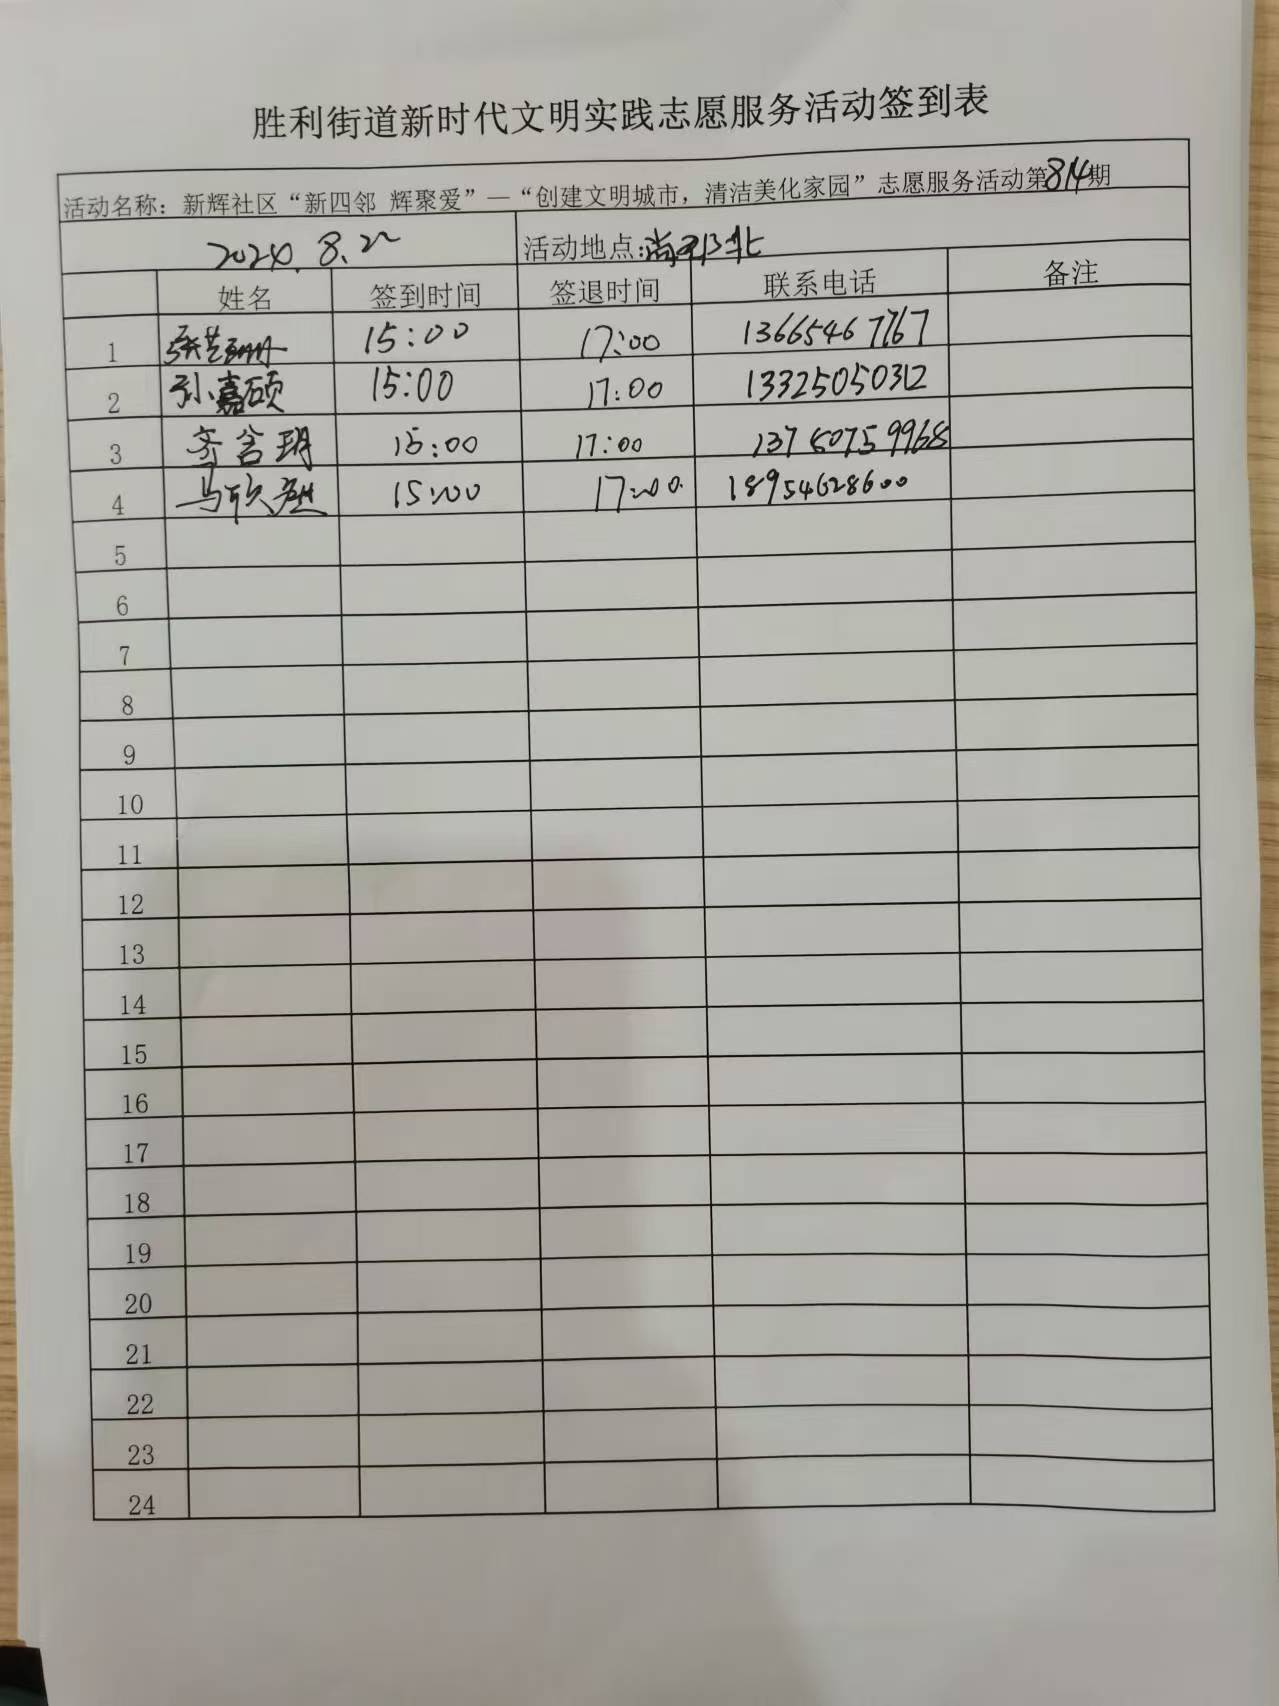 胜利街道新时代文明实践志愿服务活动签到表
活动名称：新辉社区“新四邻 辉聚爱”—“创建文明城市，清洁美化家园”志愿服务活动第814期
2024.8.22 活动地点:尚 北
姓名 签到时间 签退时间 联系电话 备注
1 张芸珊 15:00 17:00 13665467767
2 孙嘉硕 15:00 17:00 13325050312
3 齐含玥 15:00 17:00 13780759968
4 马欣 15:00 17:00 18954628600
5
6
7
8
9
10
11
12
13
14
15
16
17
18
19
20
21
22
23
24